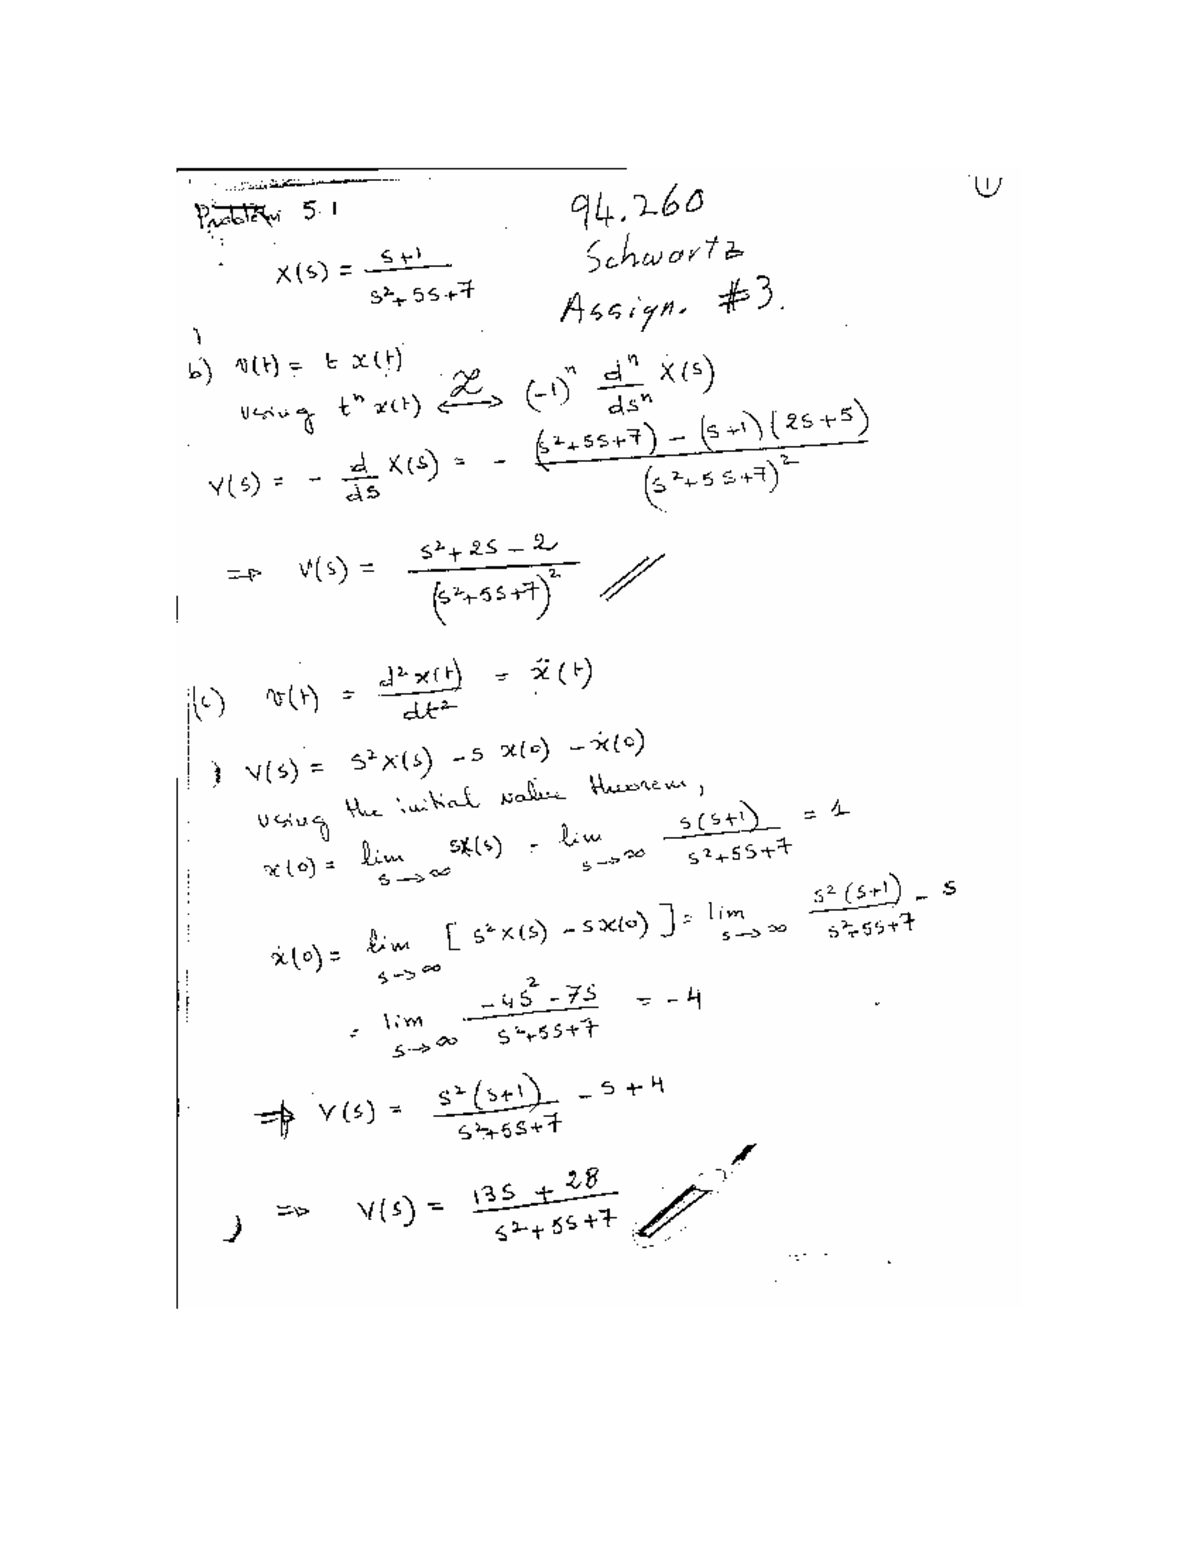 ①
Problem 5.1
94.260
Schwartz
Assign. #3.
X(s) = (s+1)/(s²+5s+7)
b) v(t) = t x(t)
using tⁿ x(t) ⟷ℒ (-1)ⁿ dⁿ/dsⁿ X(s)
V(s) = - d/ds X(s) = - ((s²+5s+7) - (s+1)(2s+5))/(s²+5s+7)²
⇒ V(s) = (s²+2s-2)/(s²+5s+7)²
(c) v(t) = d²x(t)/dt² = ẍ(t)
V(s) = s²X(s) - s x(0) - ẋ(0)
using the initial value theorem,
x(0) = lim s→∞ sX(s) = lim s→∞ s(s+1)/(s²+5s+7) = 1
ẋ(0) = lim s→∞ [s²X(s) - sx(0)] = lim s→∞ s²(s+1)/(s²+5s+7) - s
= lim s→∞ (-4s²-7s)/(s²+5s+7) = -4
⇒ V(s) = s²(s+1)/(s²+5s+7) - s + 4
⇒ V(s) = (13s + 28)/(s²+5s+7)